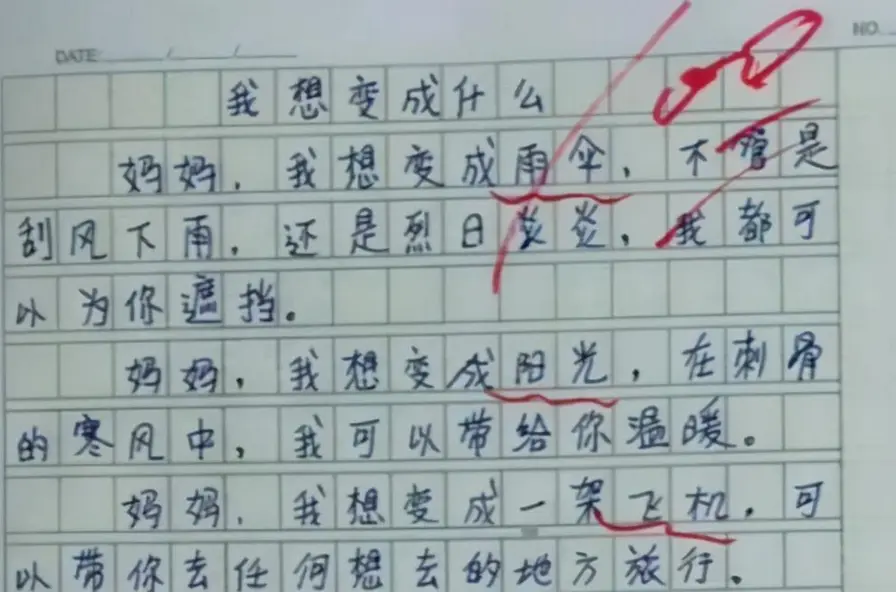 DATE / /
NO.
我想变成什么
妈妈，我想变成雨伞，不管是
刮风下雨，还是烈日炎炎，我都可
以为你遮挡。
妈妈，我想变成阳光，在刺骨
的寒风中，我可以带给你温暖。
妈妈，我想变成一架飞机，可
以带你去任何想去的地方旅行。